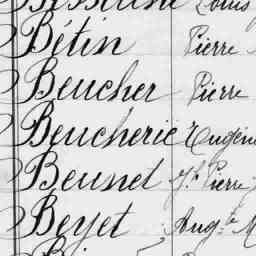 Louis
Bétin Pierre
Beucher Pierre
Beucherie Eugène
Beunet Jh Pierre
Beyet Aug.te M